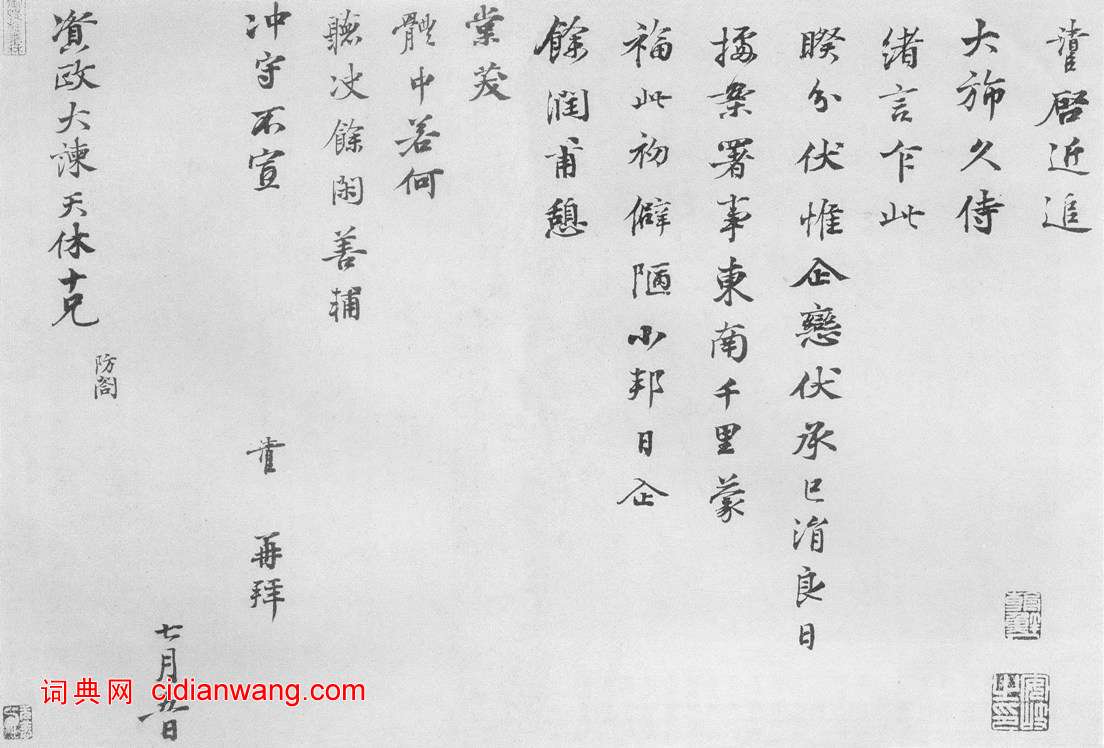 啓近追
大旆久侍
绪言乍此
睽分伏惟企戀伏承已涓良日
據案署事東南千里蒙
福此初僻陋小邦日企
餘潤甫憩
棠茇
體中若何
聽決餘閑善輔
冲守不宣
再拜
七月五日
防閤
資政大諫天休十兄
词典网 cidianwang.com